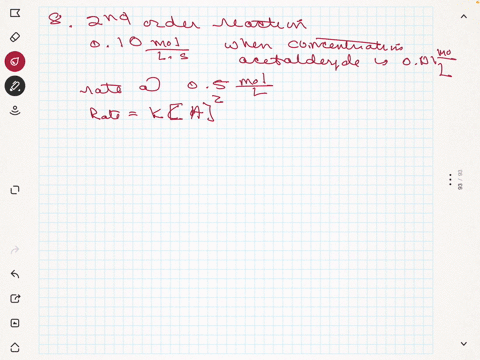 8. 2nd order reaction
0.10 mol/L.s when concentration
acetaldehyde is 0.01 mol/L
rate @ 0.5 mol/L
Rate = K[A]²
93 / 00